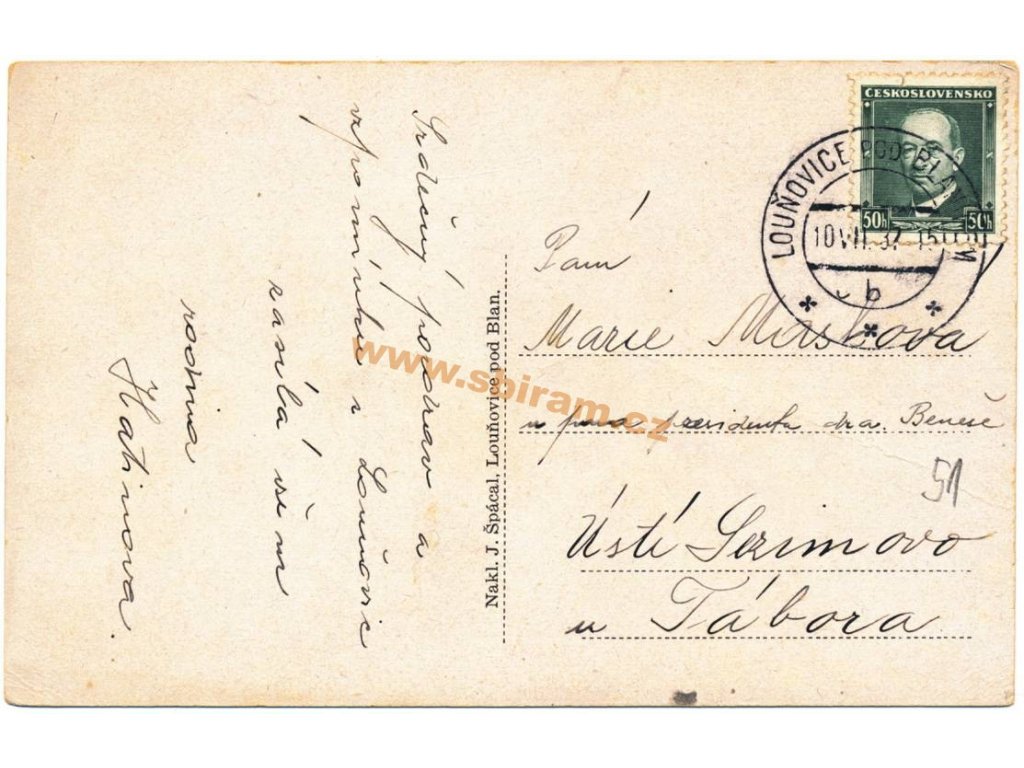 Srdečný pozdrav a
vzpomínku z Louňovic
zasílá všem
rodina
Hatinova.
Nakl. J. Špácal, Louňovice pod Blan.
ČESKOSLOVENSKO
50h 50h
LOUŇOVICE POD BLAN
10 VII. 37
b
Paní
Marie Maskova
u pana presidenta dra. Beneše
51
Ústí Sezimovo
u Tábora
www.sbiram.cz